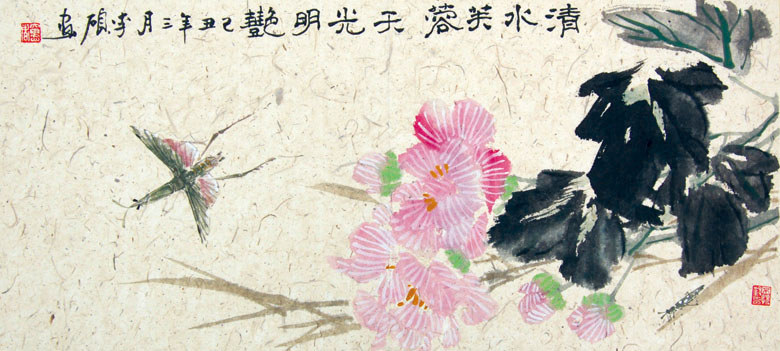 清水芙蓉 天光明艷 己丑年三月李硕画